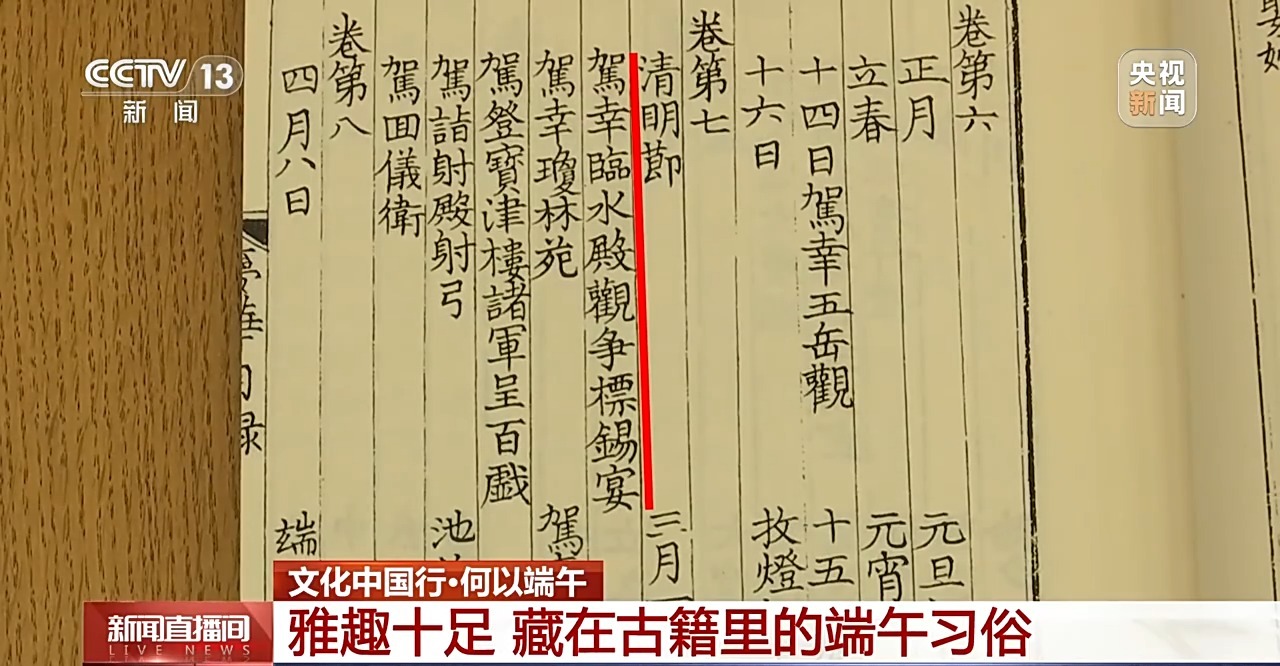 CCTV 13
新闻
央视
新闻
卷第六
正月 元旦
立春 元宵
十四日駕幸五岳觀 十五
十六日 收燈
卷第七
清明節 三月
駕幸臨水殿觀争標錫宴
駕幸瓊林苑 駕
駕登寶津樓諸軍呈百戲
駕詣射殿射弓 池
駕回儀衛
卷第八
四月八日 端
文化中国行·何以端午
新闻直播间
LIVE NEWS
雅趣十足 藏在古籍里的端午习俗